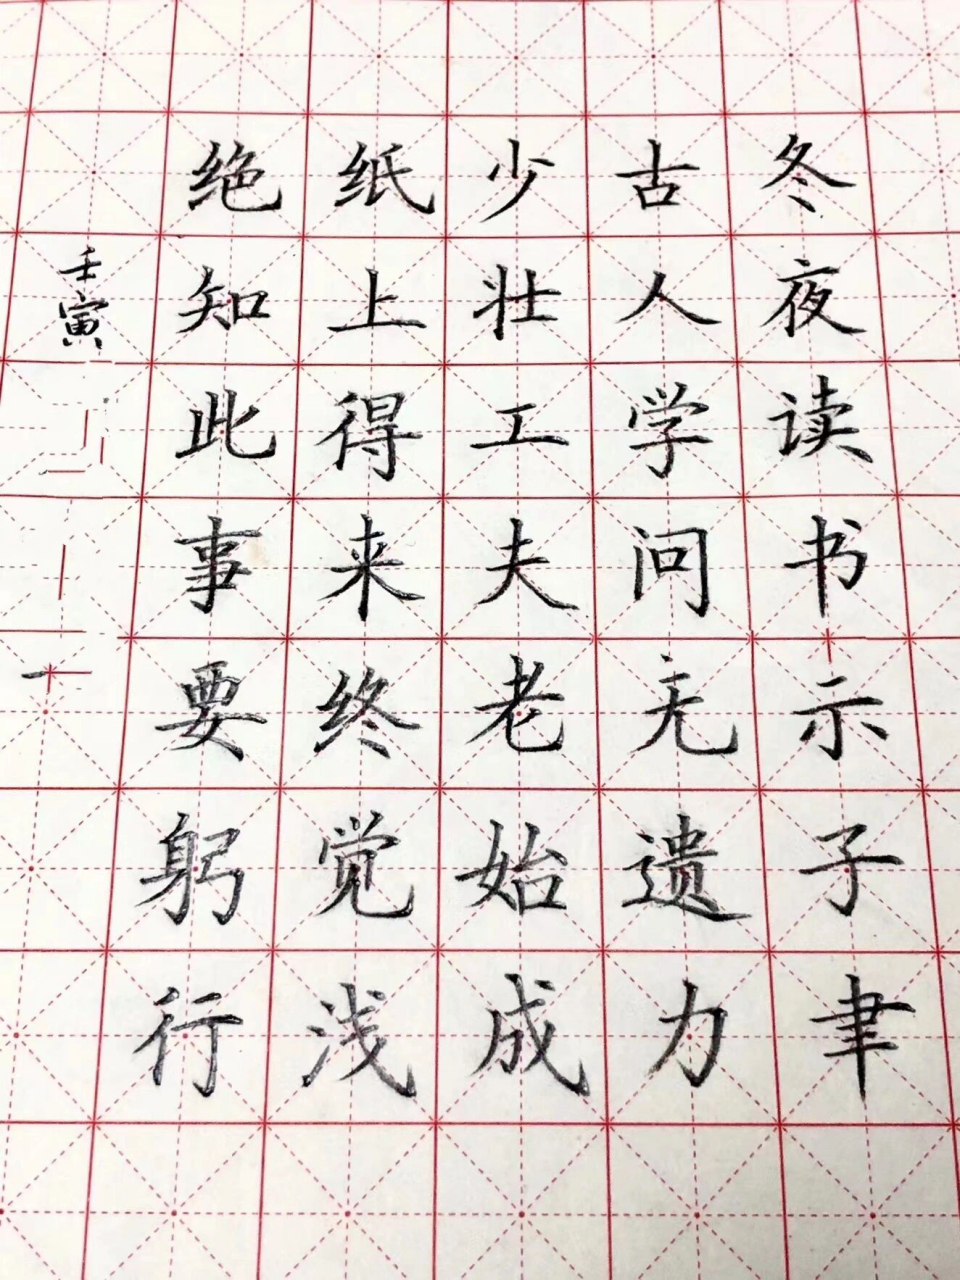 冬夜读书示子聿
古人学问无遗力
少壮工夫老始成
纸上得来终觉浅
绝知此事要躬行
壬寅